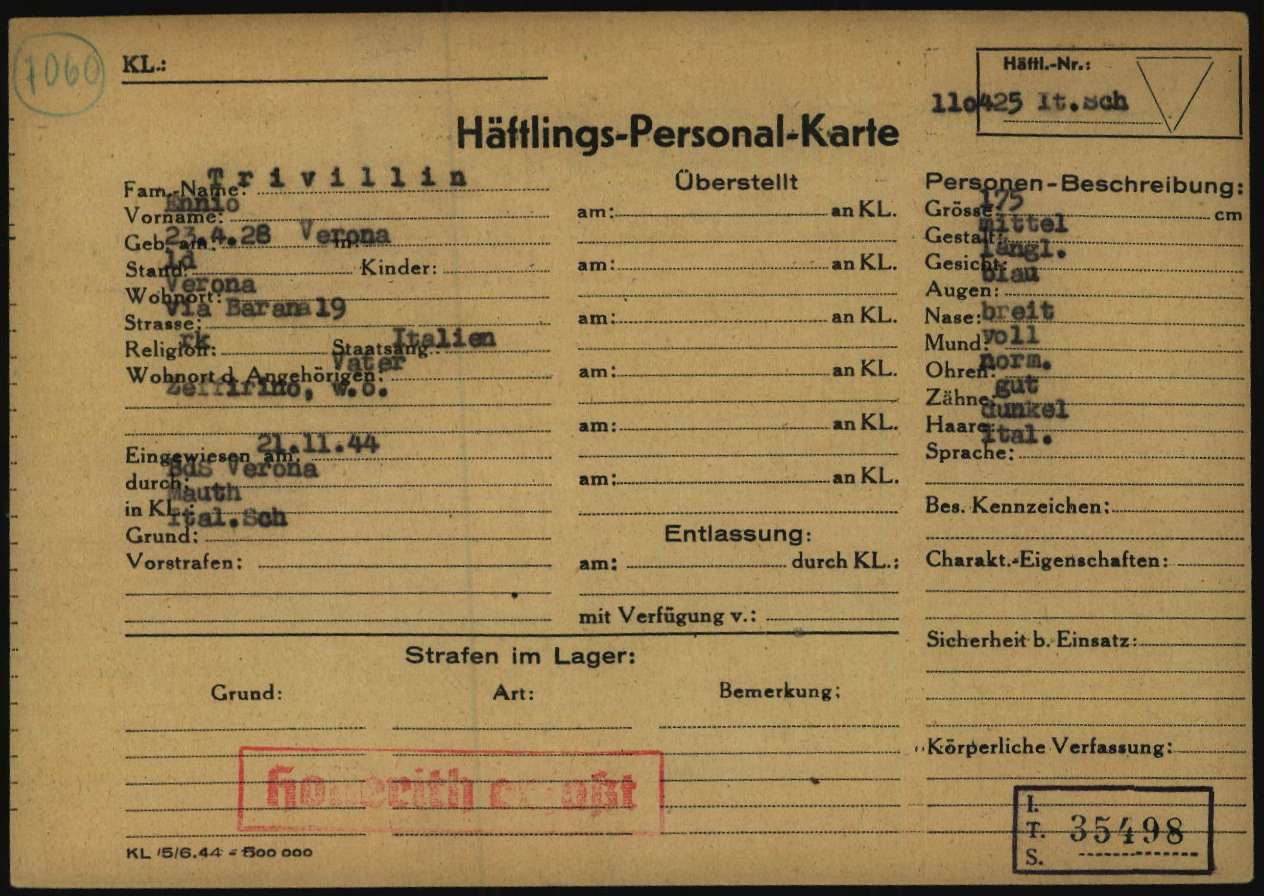 1060
KL.:
Häftl.-Nr.:
110425 It.Sch
Häftlings-Personal-Karte
Fam.-Name: Trivillin
Vorname: Ennio
Geb. am: 23.4.28 in: Verona
Stand: ld Kinder:
Wohnort: Verona
Strasse: Via Barana 19
Religion: rk Staatsang.: Italien
Wohnort d. Angehörigen: Vater
Zeffirino, w.o.
Eingewiesen am: 21.11.44
durch: BdS Verona
in KL.: Mauth
Grund: Ital.Sch
Vorstrafen:
Überstellt
am: an KL.
am: an KL.
am: an KL.
am: an KL.
am: an KL.
am: an KL.
Entlassung:
am: durch KL.:
mit Verfügung v.:
Personen-Beschreibung:
Grösse: 175 cm
Gestalt: mittel
Gesicht: längl.
Augen: blau
Nase: breit
Mund: voll
Ohren: norm.
Zähne: gut
Haare: dunkel
Sprache: ital.
Bes. Kennzeichen:
Charakt.-Eigenschaften:
Sicherheit b. Einsatz:
Körperliche Verfassung:
Strafen im Lager:
Grund: Art: Bemerkung:
Hollerith erfaßt
KL /5/6.44 - 500 000
I.
T. 35498
S.